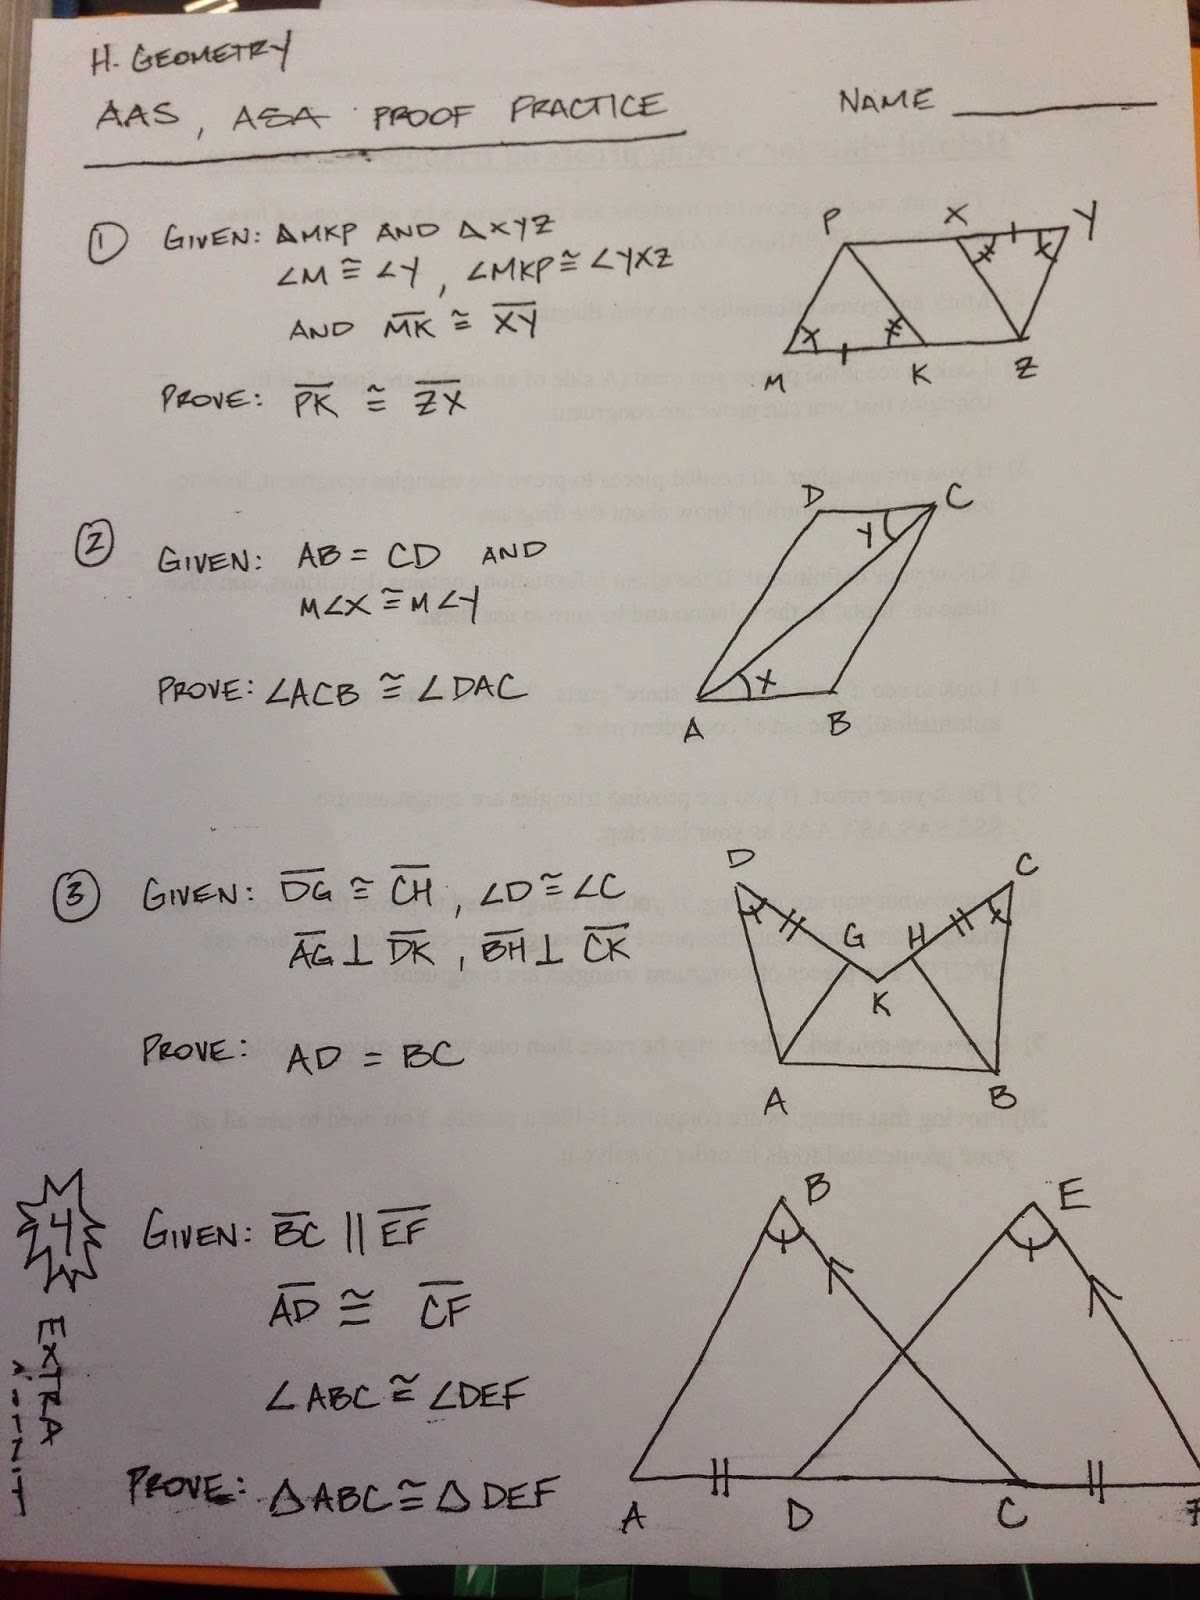 H. GEOMETRY
AAS, ASA PROOF PRACTICE
NAME
1 GIVEN: △MKP AND △XYZ
∠M ≅ ∠Y, ∠MKP ≅ ∠YXZ
AND MK ≅ XY
PROVE: PK ≅ ZX
P X Y
X X
M K Z
2 GIVEN: AB = CD AND
M∠X ≅ M∠Y
PROVE: ∠ACB ≅ ∠DAC
D C
Y
X
A B
3 GIVEN: DG ≅ CH, ∠D ≅ ∠C
AG ⊥ DK, BH ⊥ CK
PROVE: AD = BC
D C
G H
K
A B
4 GIVEN: BC || EF
AD ≅ CF
∠ABC ≅ ∠DEF
PROVE: △ABC ≅ △DEF
EXTRA
B E
A D C F